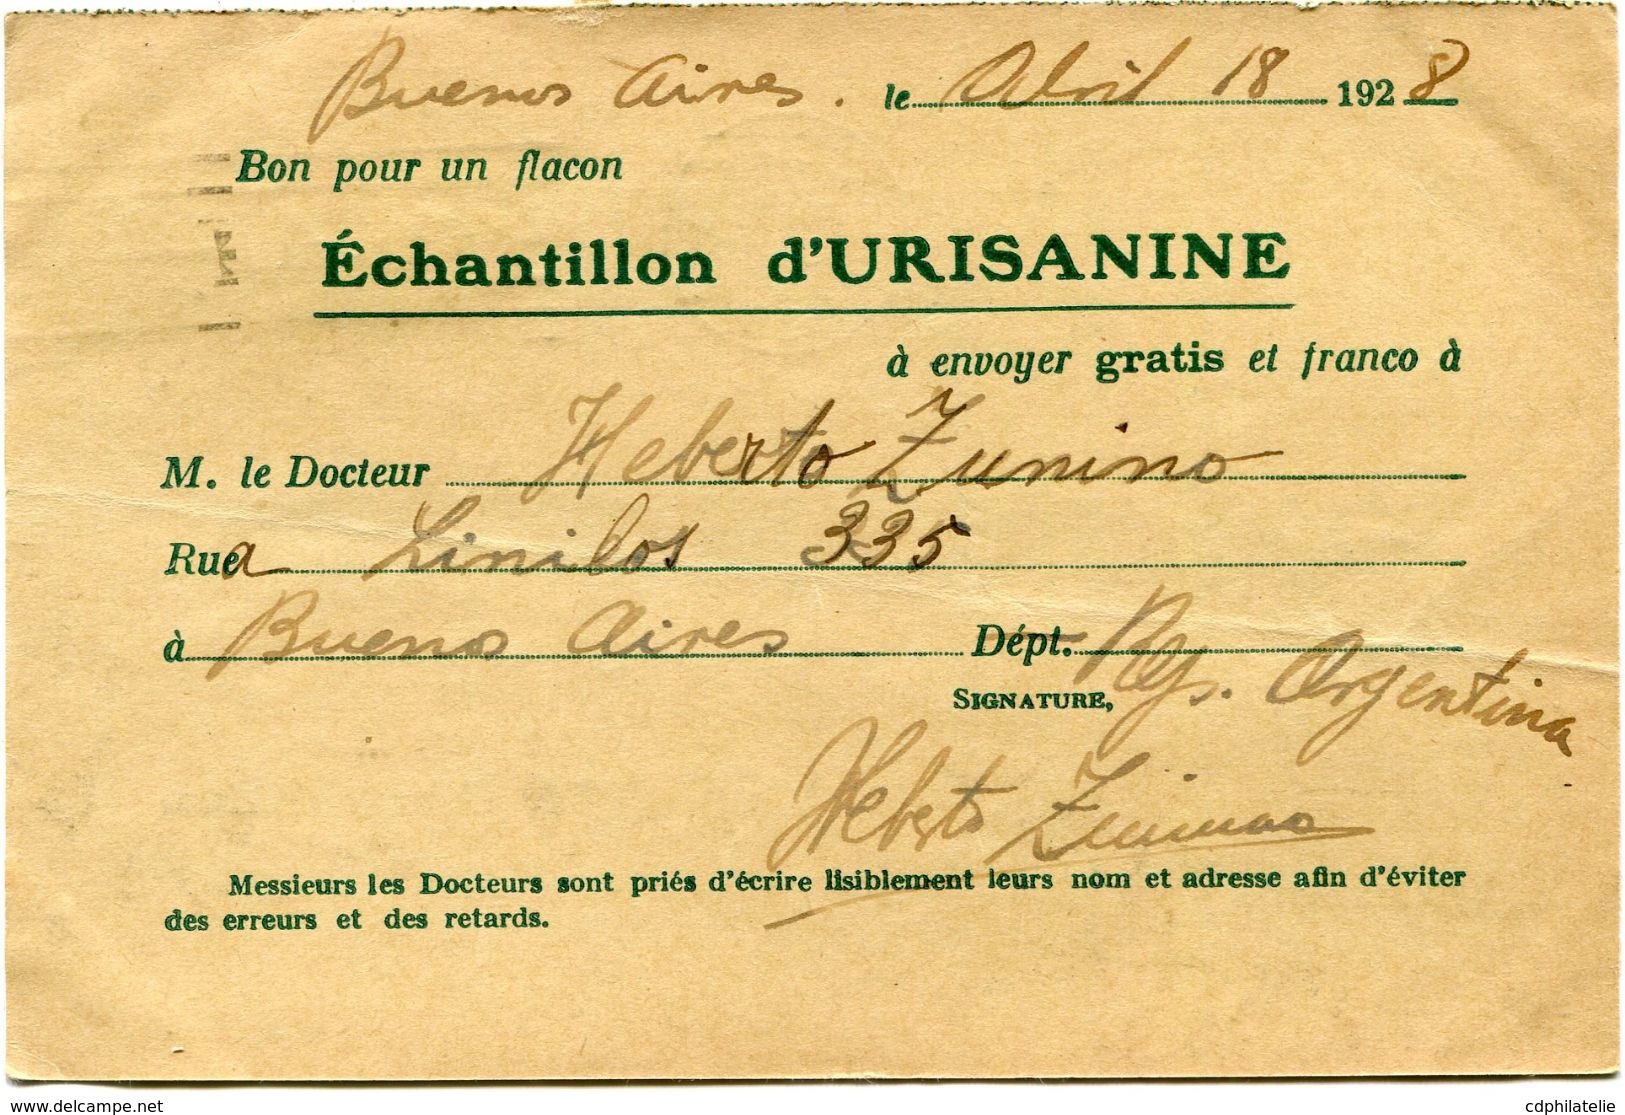 Buenos Aires. le Abril 18 1928
Bon pour un flacon
Échantillon d'URISANINE
à envoyer gratis et franco à
M. le Docteur Heberto Zunino
Rue a Liniles 335
à Buenos Aires Dépt. Rep. Argentina
SIGNATURE,
Heberto Zunino
Messieurs les Docteurs sont priés d'écrire lisiblement leurs nom et adresse afin d'éviter
des erreurs et des retards.
www.delcampe.net
cdphilatelie